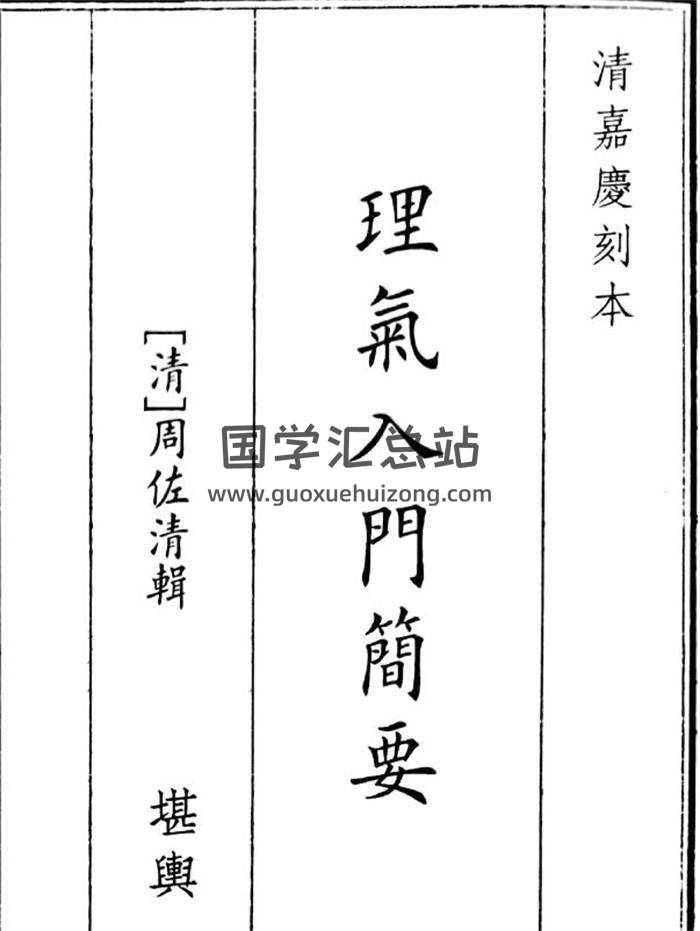 清嘉慶刻本
理氣入門簡要
[清]周佐清輯
堪輿
国学汇总站
www.guoxuehuizong.com